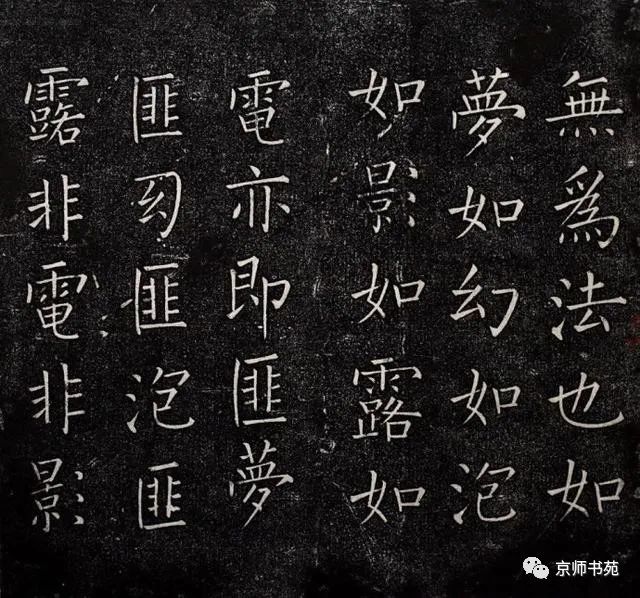 無爲法也如
夢如幻如泡
如影如露如
電亦即匪夢
匪幻匪泡匪
露非電非影
京师书苑